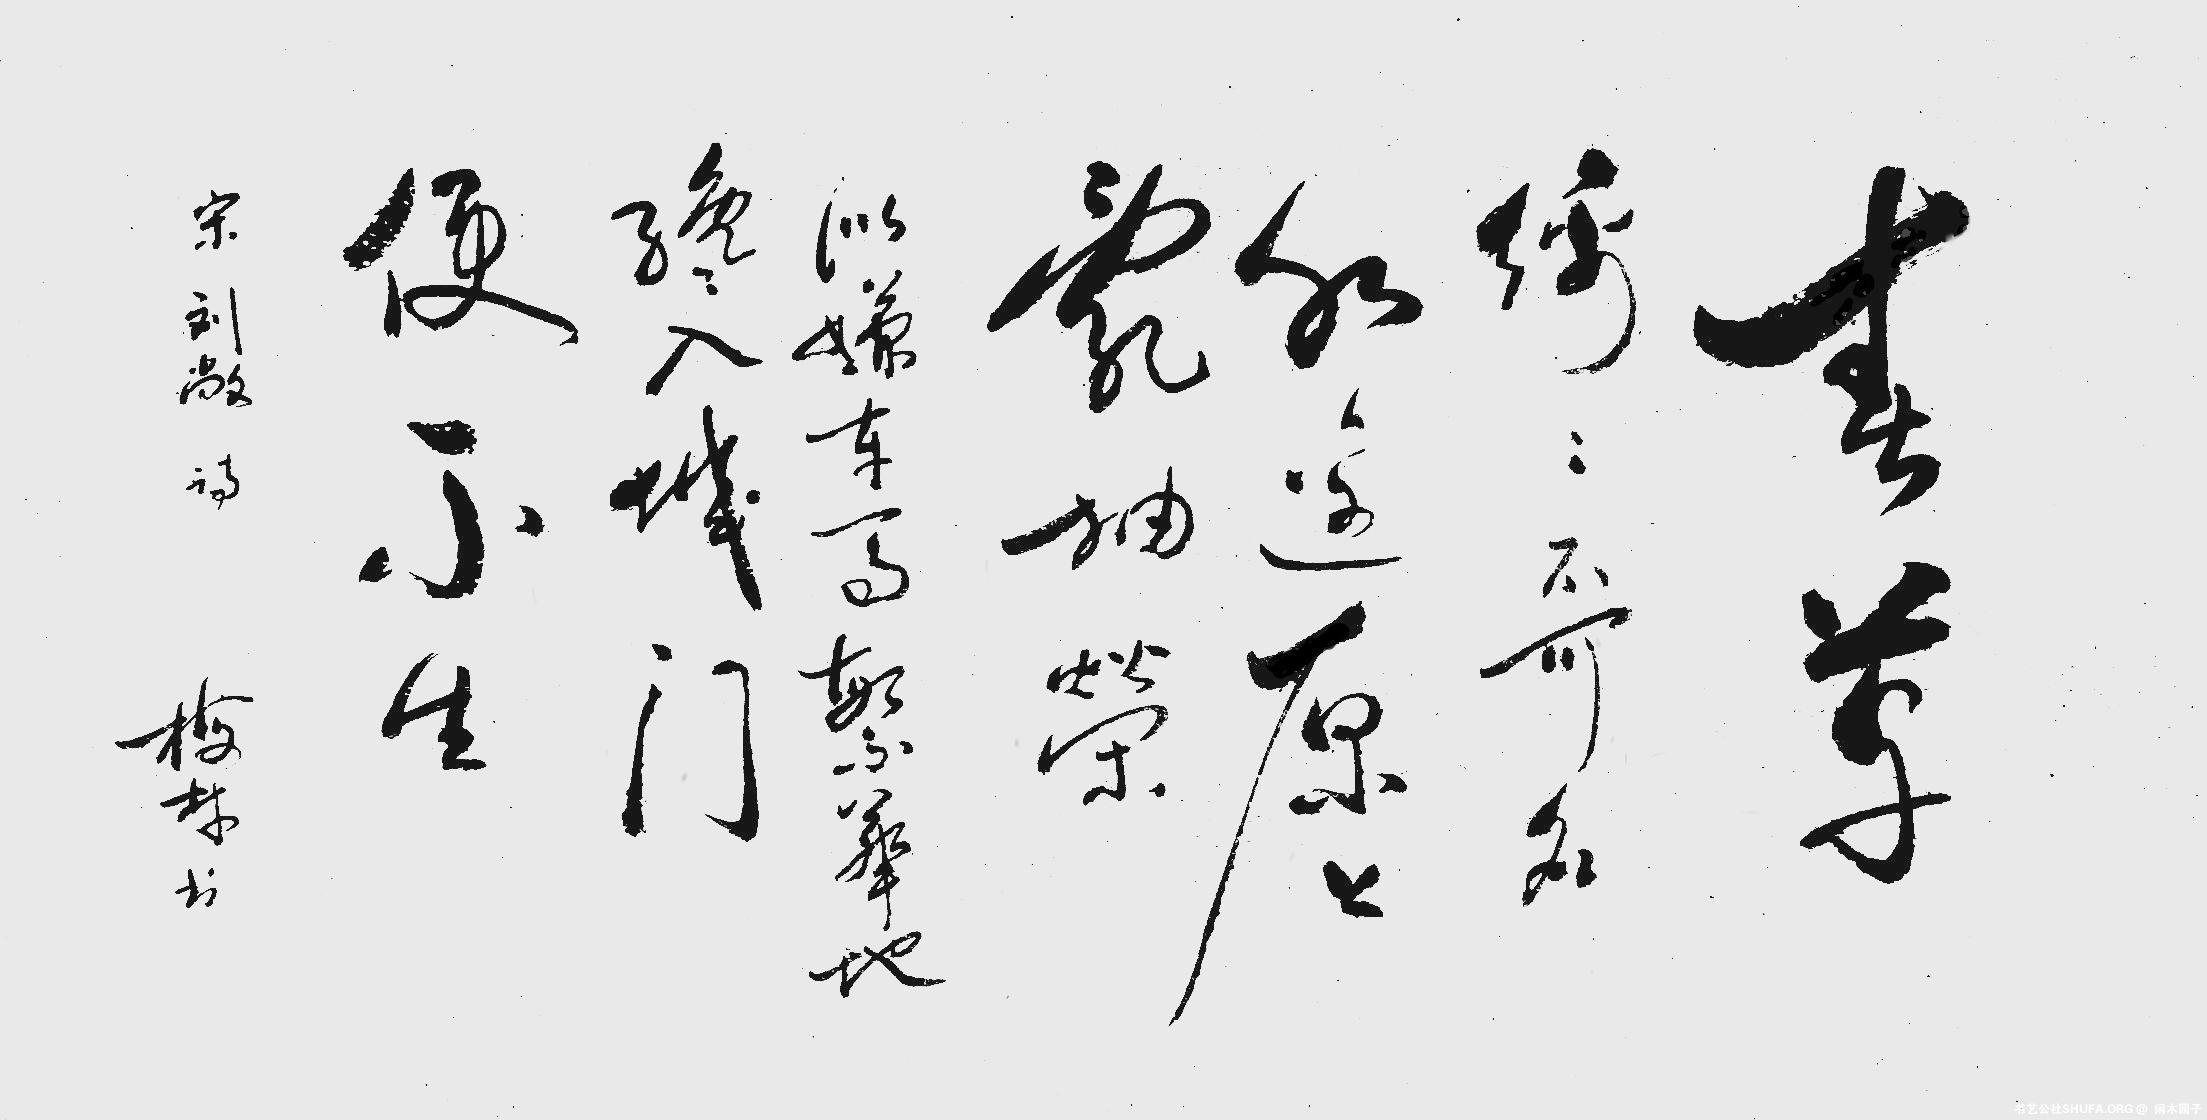 春草
绵〻不可名
水边原上
亂抽榮
似嫌车马繁華地
纔入城门
便不生
宋 刘敞 诗 梅 书
书艺公社SHUFA.ORG @ 闲木园子